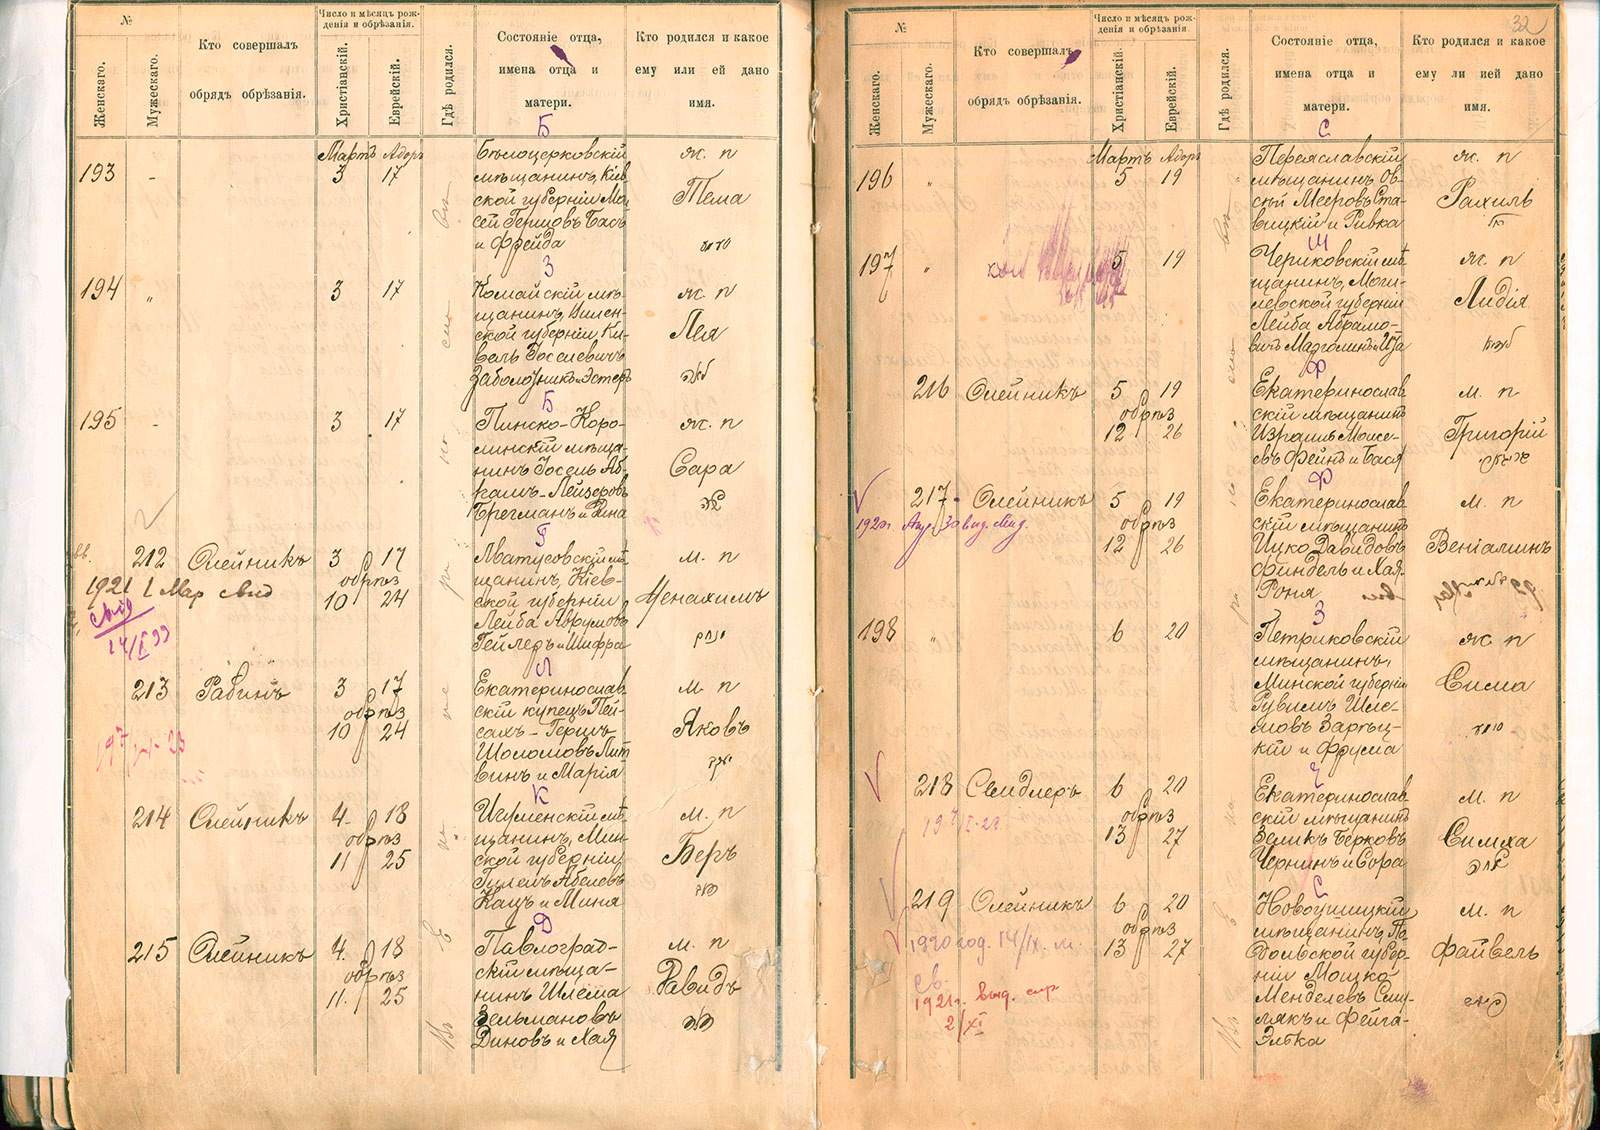 №
Женскаго.
Мужескаго.
Кто совершалъ
обрядъ обрѣзанія.
Число и мѣсяцъ рож-
денія и обрѣзанія.
Христіанскій.
Еврейскій.
Гдѣ родился.
Состояніе отца,
имена отца и
матери.
Кто родился и какое
ему или ей дано
имя.
Б
193
Мартъ Адоръ
3 17
Бѣлоцерковскій
мѣщанинъ, Кіев
ской губерніи Мо
сей Герцовъ Басъ
и Фрейда
ж. п
Тема
З
194
3 17
Комайскій мѣ-
щанинъ, Вилен-
ской губерніи, Ки-
вель Іоселевичъ
Заболотникъ и Эстеръ
ж. п
Лея
Б
195
3 17
Пинско-Коро-
линскій мѣща-
нинъ Іосель Аб-
рамъ-Лейзеровъ
Брегманъ и Хина
ж. п
Сара
Г
212 Олейникъ
3 17
обрѣз
10 24
щанинъ, Кіев-
ской губерніи
Лейба Аврумовъ
Гейлеръ и Шифра
м. п
Менахимъ
1921 1 Мар свид
14/X 99
Л
213 Рабинъ
3 17
обрѣз
10 24
Екатеринослав
скій купецъ Пей-
сахъ-Гершъ
Шоломовъ Лит
винъ и Марія
м. п
Яковъ
К
214 Олейникъ
4 18
обрѣз
11 25
Игуменскій мѣ
щанинъ, Мин-
ской губерніи
Абелевъ
Кацъ и Миня
м. п
Беръ
Д
215 Олейникъ
4 18
обрѣз
11. 25
Павлоград-
скій мѣща-
нинъ Шлема
Зельмановъ
Диновъ и Хая
м. п
Давидъ
32
№
Женскаго.
Мужескаго.
Кто совершалъ
обрядъ обрѣзанія.
Число и мѣсяцъ рож-
денія и обрѣзанія.
Христіанскій.
Еврейскій.
Гдѣ родился.
Состояніе отца,
имена отца и
матери.
Кто родился и какое
ему ли ией дано
имя.
С
196
Мартъ Адоръ
5 19
Переяславскій
мѣщанинъ Ов-
сѣй Мееровъ Ста-
вицкій и Ривка
ж. п
Рахиль
רחל
М
197
5 19
Чериковскій мѣ
щанинъ, Моги-
левской губерніи
Лейба Абрамо-
вичъ Марголинъ и Ита
ж. п
Лидія
Ф
216 Олейникъ
5 19
обрѣз
12 26
Екатеринослав
скій мѣщанинъ
Израиль Моисе-
евъ Фейнъ и Бася
м. п
Григорій
Ф
217 Олейникъ
5 19
обрѣз
12 26
Екатеринослав
скій мѣщанинъ
Ицко Давидовъ
Финдель и Хая-
Роня
м. п
Веніаминъ
З
198
6 20
Петриковскій
мѣщанинъ,
Минской губерніи
Рувимъ Шле-
мовъ Зарѣц-
кій и Фрума
ж. п
Сима
Ч
218 Свидлеръ
6 20
обрѣз
13 27
Екатеринослав
скій мѣщанинъ
Зеликъ Берковъ
Чернинъ и Сора
м. п
Симха
С
219 Олейникъ
6 20
обрѣз
13 27
Новоушицкій
мѣщанинъ, По
дольской губер-
ніи Мошко
Менделевъ Сми-
лякъ и Фейга-
Элька
м. п
Файвель
1920 год. 14/IX. м.
св.
1921г. выд. спр
2/XI